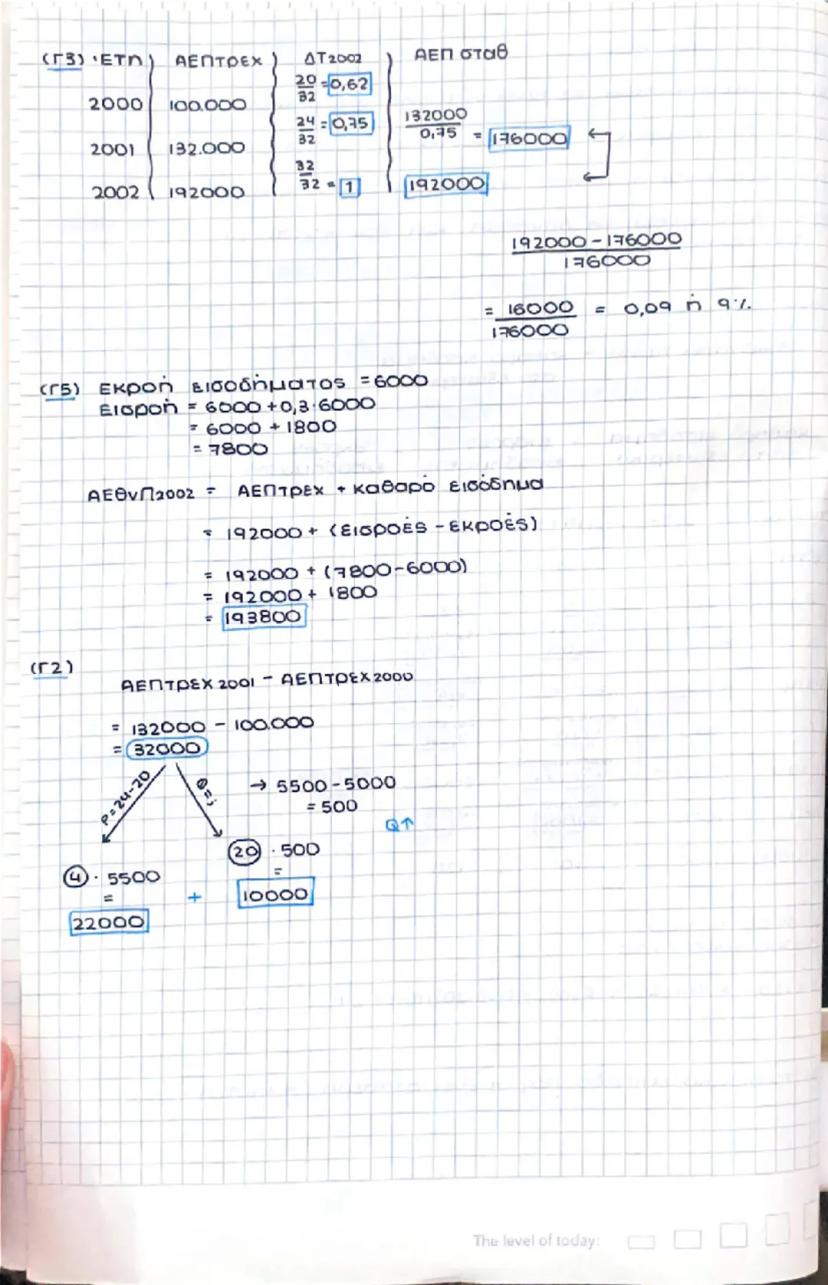 (Γ3) ΈΤΗ ΑΕΠτρεχ ΔΤ2002 ΑΕΠ σταθ
2000 100.000 20/32 = 0,62
2001 132.000 24/32 = 0,75 132000/0,75 = 176000
2002 192000 32/32 = 1 192000
192000 - 176000
176000
= 16000/176000 = 0,09 ή 9%
(Γ5) Εκροή εισοδήματος = 6000
Εισροή = 6000 + 0,3·6000
= 6000 + 1800
= 7800
ΑΕθνΠ2002 = ΑΕΠτρεχ + καθαρό εισόδημα
= 192000 + (εισροές - εκροές)
= 192000 + (7800-6000)
= 192000 + 1800
= 193800
(Γ2)
ΑΕΠτρεχ 2001 - ΑΕΠτρεχ 2000
= 132000 - 100.000
= 32000
P=24-20 Q=; → 5500-5000
= 500
Q↑
4 · 5500 20 · 500
= + =
22000 10000
The level of today: